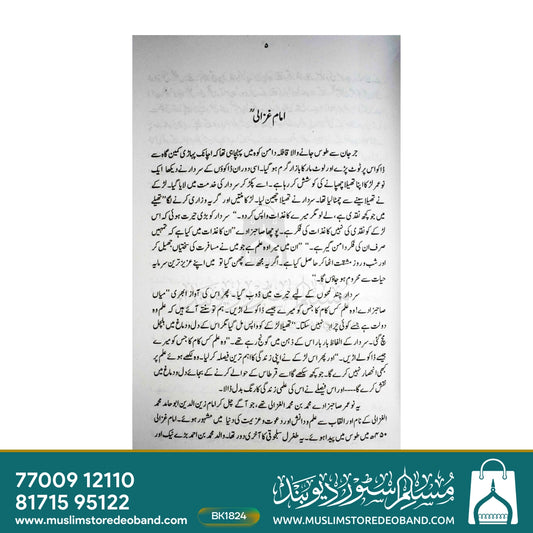 ۵
امام غزالیؒ
جرجان سے طوس جانے والا قافلہ دامن کوہ میں پہنچا ہی تھا کہ اچانک پہاڑی کمین گاہ سے
ڈاکو اس پر ٹوٹ پڑے اور لوٹ مار کا بازار گرم ہو گیا۔ اسی دوران ڈاکوؤں کے سردار نے دیکھا ایک
نو عمر لڑکا اپنا تھیلا چھپانے کی کوشش کر رہا ہے۔ اسے پکڑ کر سردار کی خدمت میں لایا گیا۔ لڑکے
نے تھیلا سینے سے چمٹا لیا تھا۔ سردار نے تھیلا چھین لیا۔ لڑکا منتیں اور گریہ و زاری کرنے لگا "تھیلے
میں جو کچھ نقدی ہے، لے لو مگر میرے کاغذات واپس کر دو۔" سردار کو بڑی حیرت ہوئی کہ اس
لڑکے کو نقدی کی نہیں کاغذات کی فکر ہے۔ پوچھا صاحبزادے "ان کاغذات میں کیا ہے کہ تمہیں
صرف ان کی فکر دامن گیر ہے۔" "ان میں میرا وہ علم ہے جو میں نے مسافرت کی سختیاں جھیل کر
اور شب و روز مشقت اٹھا کر حاصل کیا ہے۔ اگر یہ مجھ سے چھن گیا تو میں اپنے عزیز ترین سرمایہ
حیات سے محروم ہو جاؤں گا۔"
سردار چند لمحوں کے لیے حیرت میں ڈوب گیا۔ پھر اس کی آواز ابھری "میاں
صاحبزادے! وہ علم کس کام کا جس کو میرے جیسے ڈاکو لے اڑیں۔ ہم تو سنتے آئے ہیں کہ علم وہ
دولت ہے جسے کوئی چرا نہیں سکتا۔" تھیلا لڑکے کو واپس مل گیا مگر اس کے دل و دماغ میں ہلچل
مچ گئی۔ سردار کے الفاظ بار بار اس کے ذہن میں گونج رہے تھے۔ "وہ علم کس کام کا جس کو میرے
جیسے ڈاکو لے اڑیں۔" اور پھر اس لڑکے نے اپنی زندگی کا اہم ترین فیصلہ کر لیا۔ وہ لکھے ہوئے علم پر
کبھی انحصار نہیں کرے گا۔ جو کچھ سیکھے گا اسے قرطاس کے حوالے کرنے کے بجائے دل و دماغ میں
نقش کرے گا۔۔۔۔ اور اس فیصلے نے اس کی علمی زندگی کا رنگ بدل ڈالا۔
یہ نو عمر صاحبزادے محمد بن محمد الغزالی تھے، جو آگے چل کر امام زین الدین ابو حامد محمد
الغزالی کے نام اور القاب سے علم و دانش اور دعوت و عزیمت کی دنیا میں مشہور ہوئے۔ امام غزالی
۴۵۰ھ میں طوس میں پیدا ہوئے۔ یہ طغرل سلجوقی کا آخری دور تھا۔ والد محمد بن احمد بڑے نیک اور
77009 12110
81715 95122
www.muslimstoredeoband.com
BK1824
مسلم اسٹور دیوبند
WWW.MUSLIMSTOREDEOBAND.COM